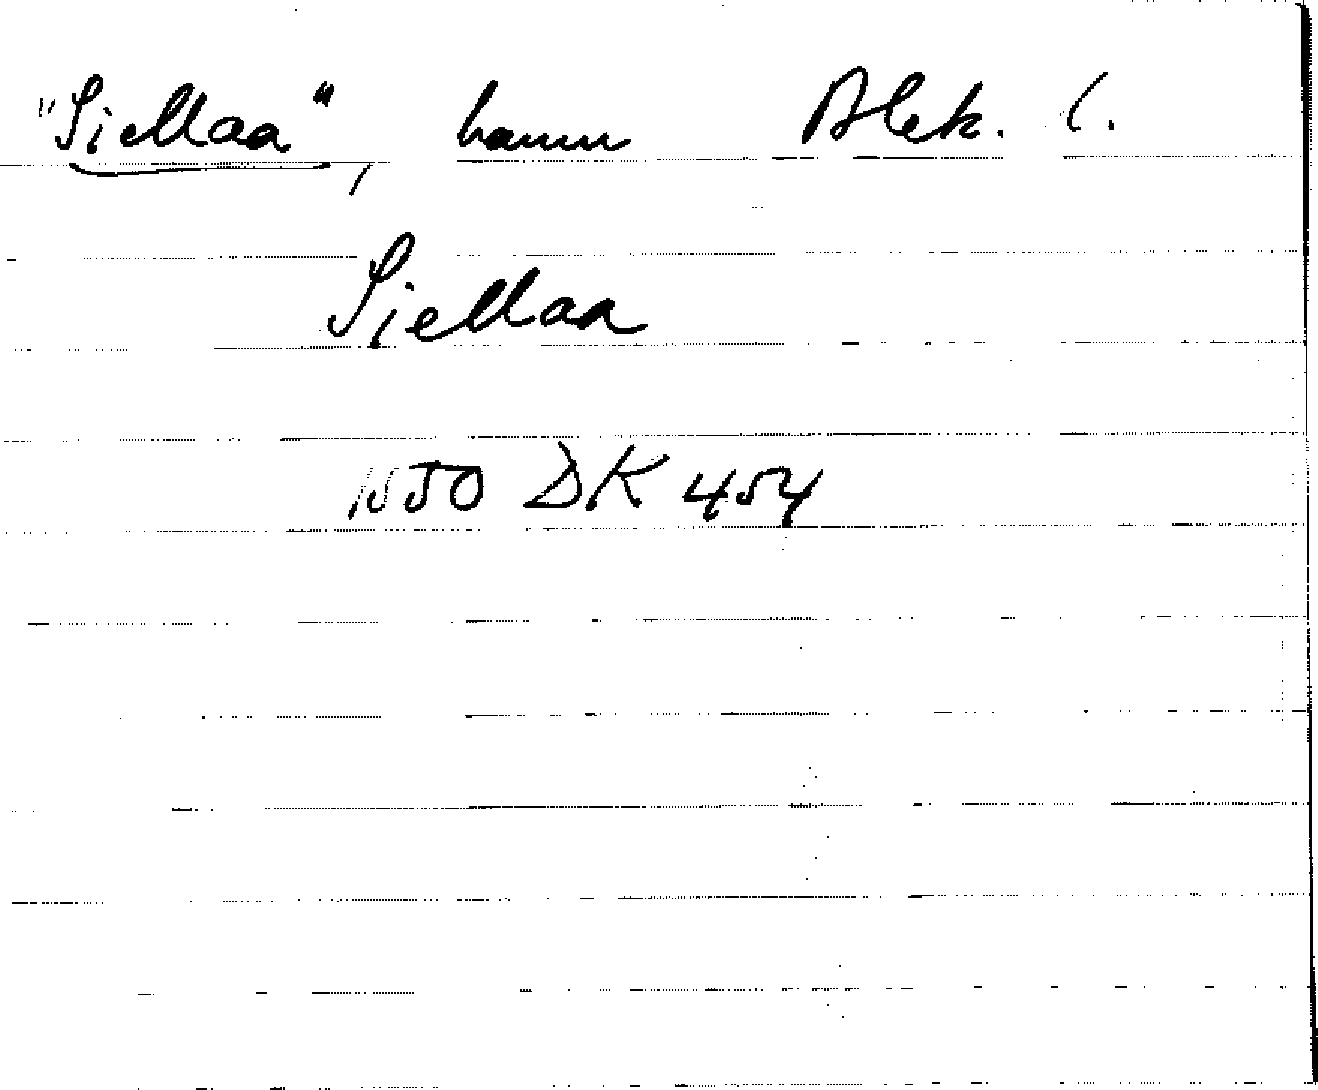 "Siellaa", hamn Alek. l.
Siellaa
1550 DK 454